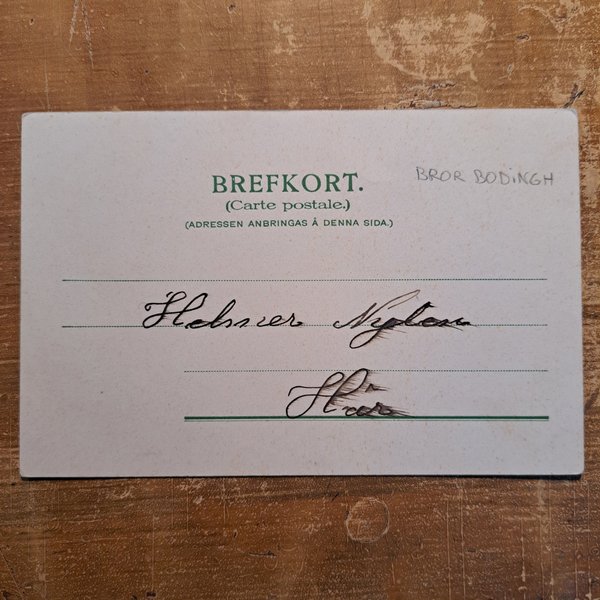 BREFKORT.
BROR BODINGH
(Carte postale.)
(ADRESSEN ANBRINGAS Å DENNA SIDA.)
Helmer Nylén
Här